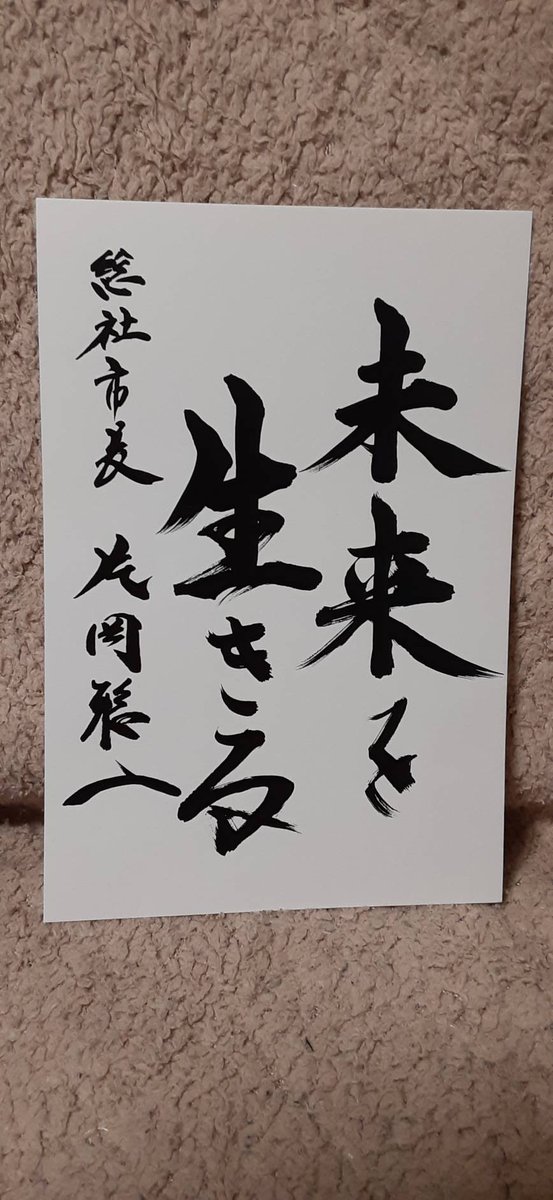 未来を
生きる
総社市長 片岡聡一